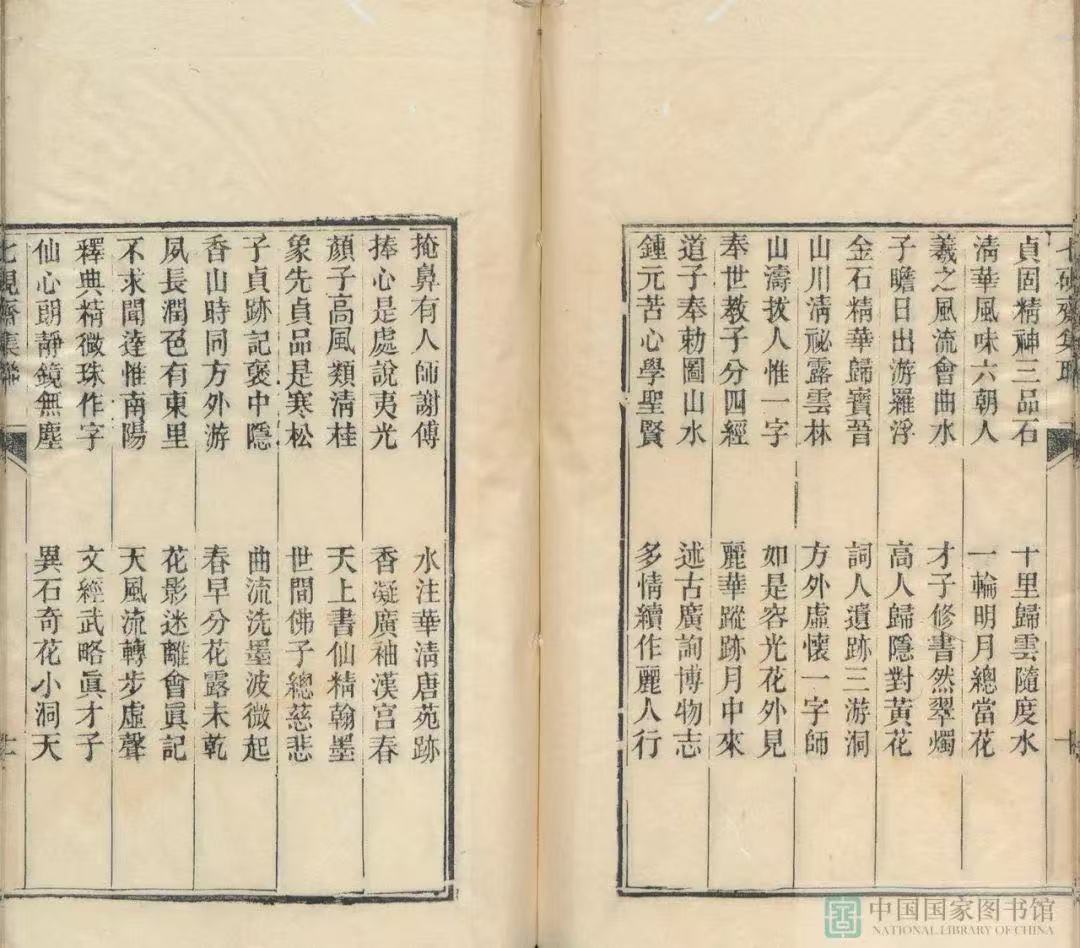 貞固精神三品石 十里歸雲隨度水
淸華風味六朝人 一輪明月總當花
羲之風流會曲水 才子修書然翠燭
子瞻日出游羅浮 高人歸隱對黃花
金石精華歸寶晉 詞人遺跡三游洞
山川淸祕露雲林 方外虛懷一字師
山濤拔人惟一字 如是容光花外見
奉世教子分四經 麗華蹤跡月中來
道子奉勅圖山水 述古廣詢博物志
鍾元苦心學聖賢 多情續作麗人行
掩鼻有人師謝傅 水注華淸唐苑跡
捧心是處說夷光 香凝廣袖漢宫春
顏子高風類淸桂 天上書仙精翰墨
象先貞品是寒松 世間佛子總慈悲
子貞跡記褒中隱 曲流洗墨波微起
香山時同方外游 春早分花露未乾
夙長潤色有東里 花影迷離會眞記
不求聞達惟南陽 天風流轉步虛聲
釋典精微珠作字 文經武略眞才子
仙心朗靜鏡無塵 異石奇花小洞天
中国国家图书馆
NATIONAL LIBRARY OF CHINA